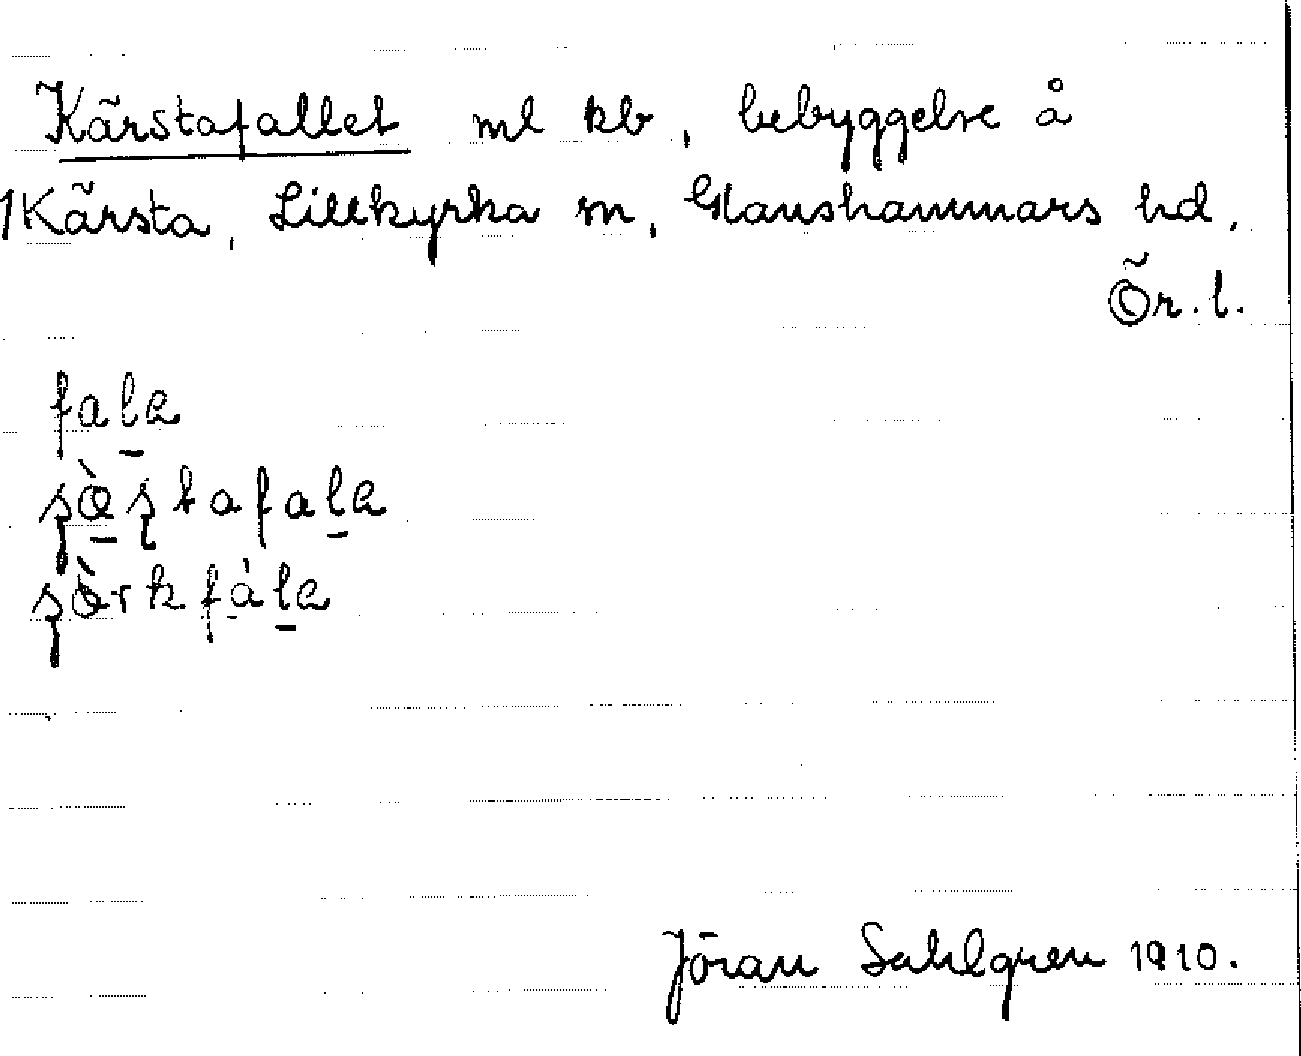 Kärstafallet ml kb, bebyggelse å
1 Kärsta, Lillkyrka sn, Glanshammars hd,
Ör. l.
fala
Jöran Sahlgren 1910.